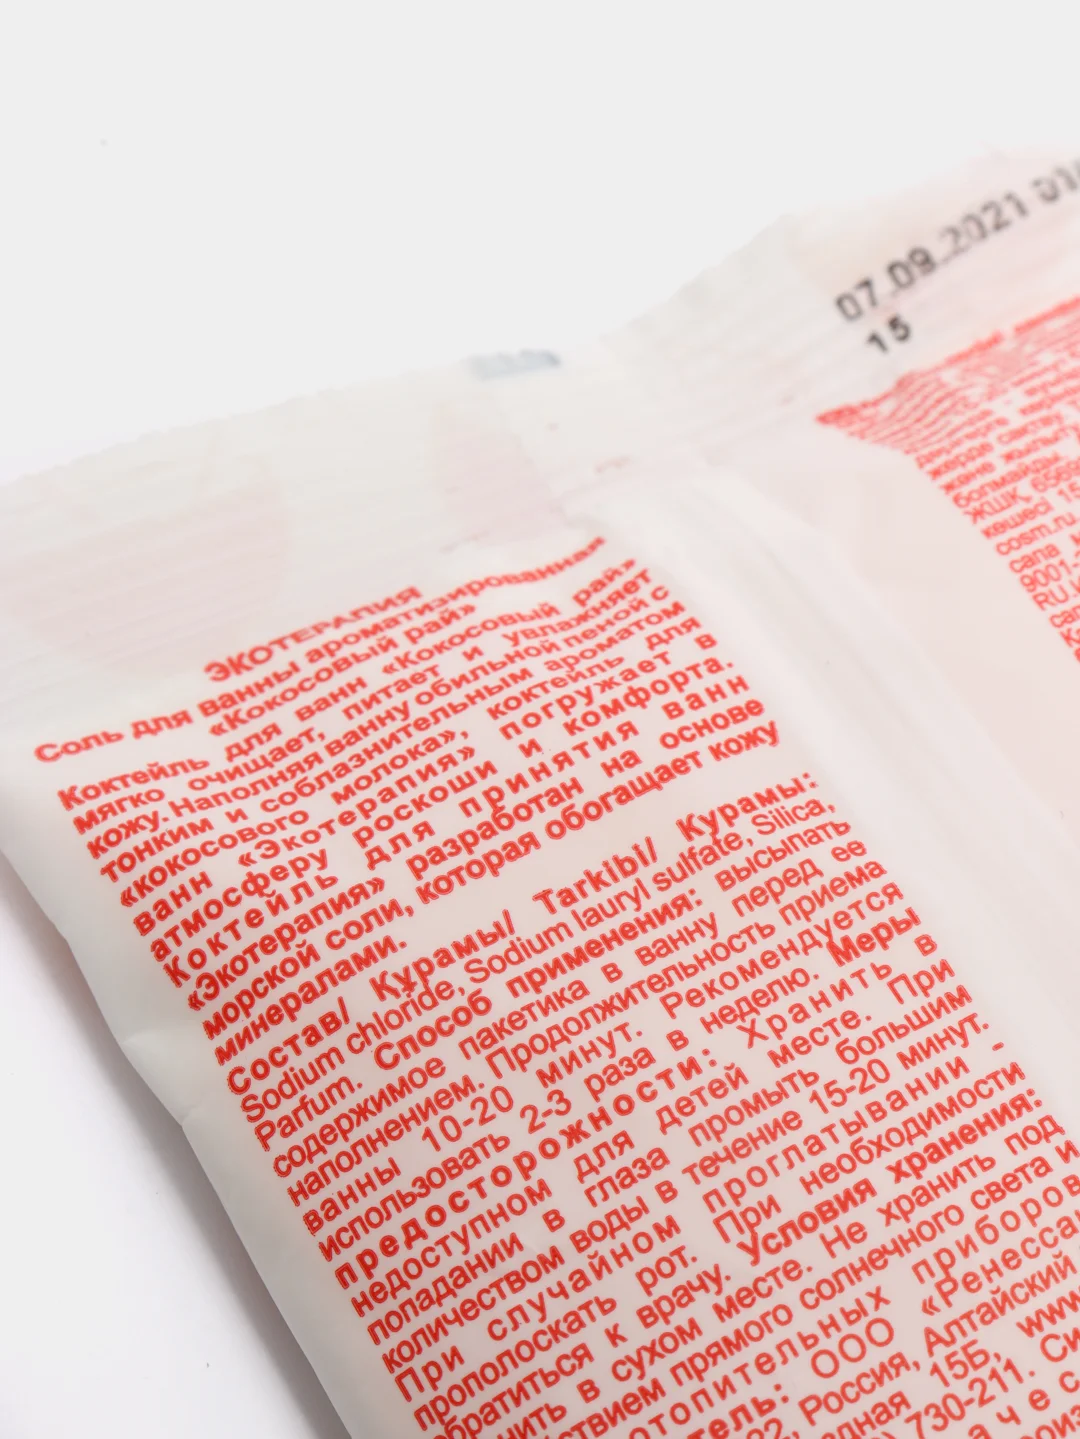 07.09.2021
15
ЭКОТЕРАПИЯ
Соль для ванны ароматизированная
«Кокосовый рай»
Коктейль для ванн «Кокосовый рай»
мягко очищает, питает и увлажняет
кожу. Наполняя ванну обильной пеной с
тонким и соблазнительным ароматом
«кокосового молока», коктейль для
ванн «Экотерапия» погружает в
атмосферу роскоши и комфорта.
Коктейль для принятия ванн
«Экотерапия» разработан на основе
морской соли, которая обогащает кожу
минералами.
Состав/ Құрамы/ Tarkibi/ Курамы:
Sodium chloride, Sodium lauryl sulfate, Silica,
Parfum. Способ применения: высыпать
содержимое пакетика в ванну перед ее
наполнением. Продолжительность приема
ванны 10-20 минут. Рекомендуется
использовать 2-3 раза в неделю. Меры
предосторожности: Хранить в
недоступном для детей месте. При
попадании в глаза промыть большим
количеством воды в течение 15-20 минут.
При случайном проглатывании -
прополоскать рот. При необходимости
обратиться к врачу. Условия хранения:
в сухом месте. Не хранить под
прямого солнечного света и
ООО «Ренесса
Россия, Алтайский
15Б, www
730-211.
жерде сақтау.
және
болмайды.
ЖШҚ, 6569
көшесі 15
cosm.ru.
сапа
9001-